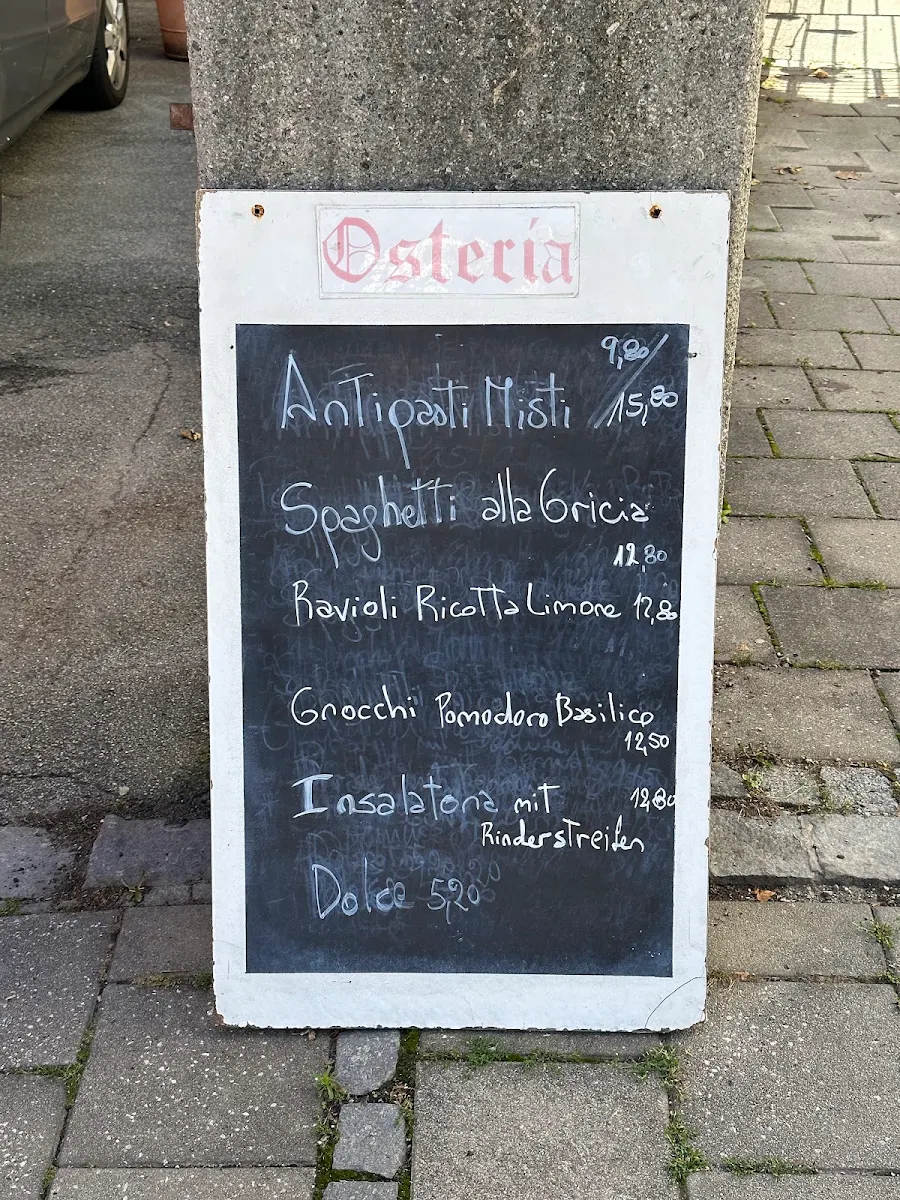 Osteria
9,80/
Antipasti Misti 15,80
Spaghetti alla Gricia
12,80
Ravioli Ricotta Limone 12,80
Gnocchi Pomodoro Basilico
12,50
Insalatona mit 12,80
Rinderstreifen
Dolce 5,20